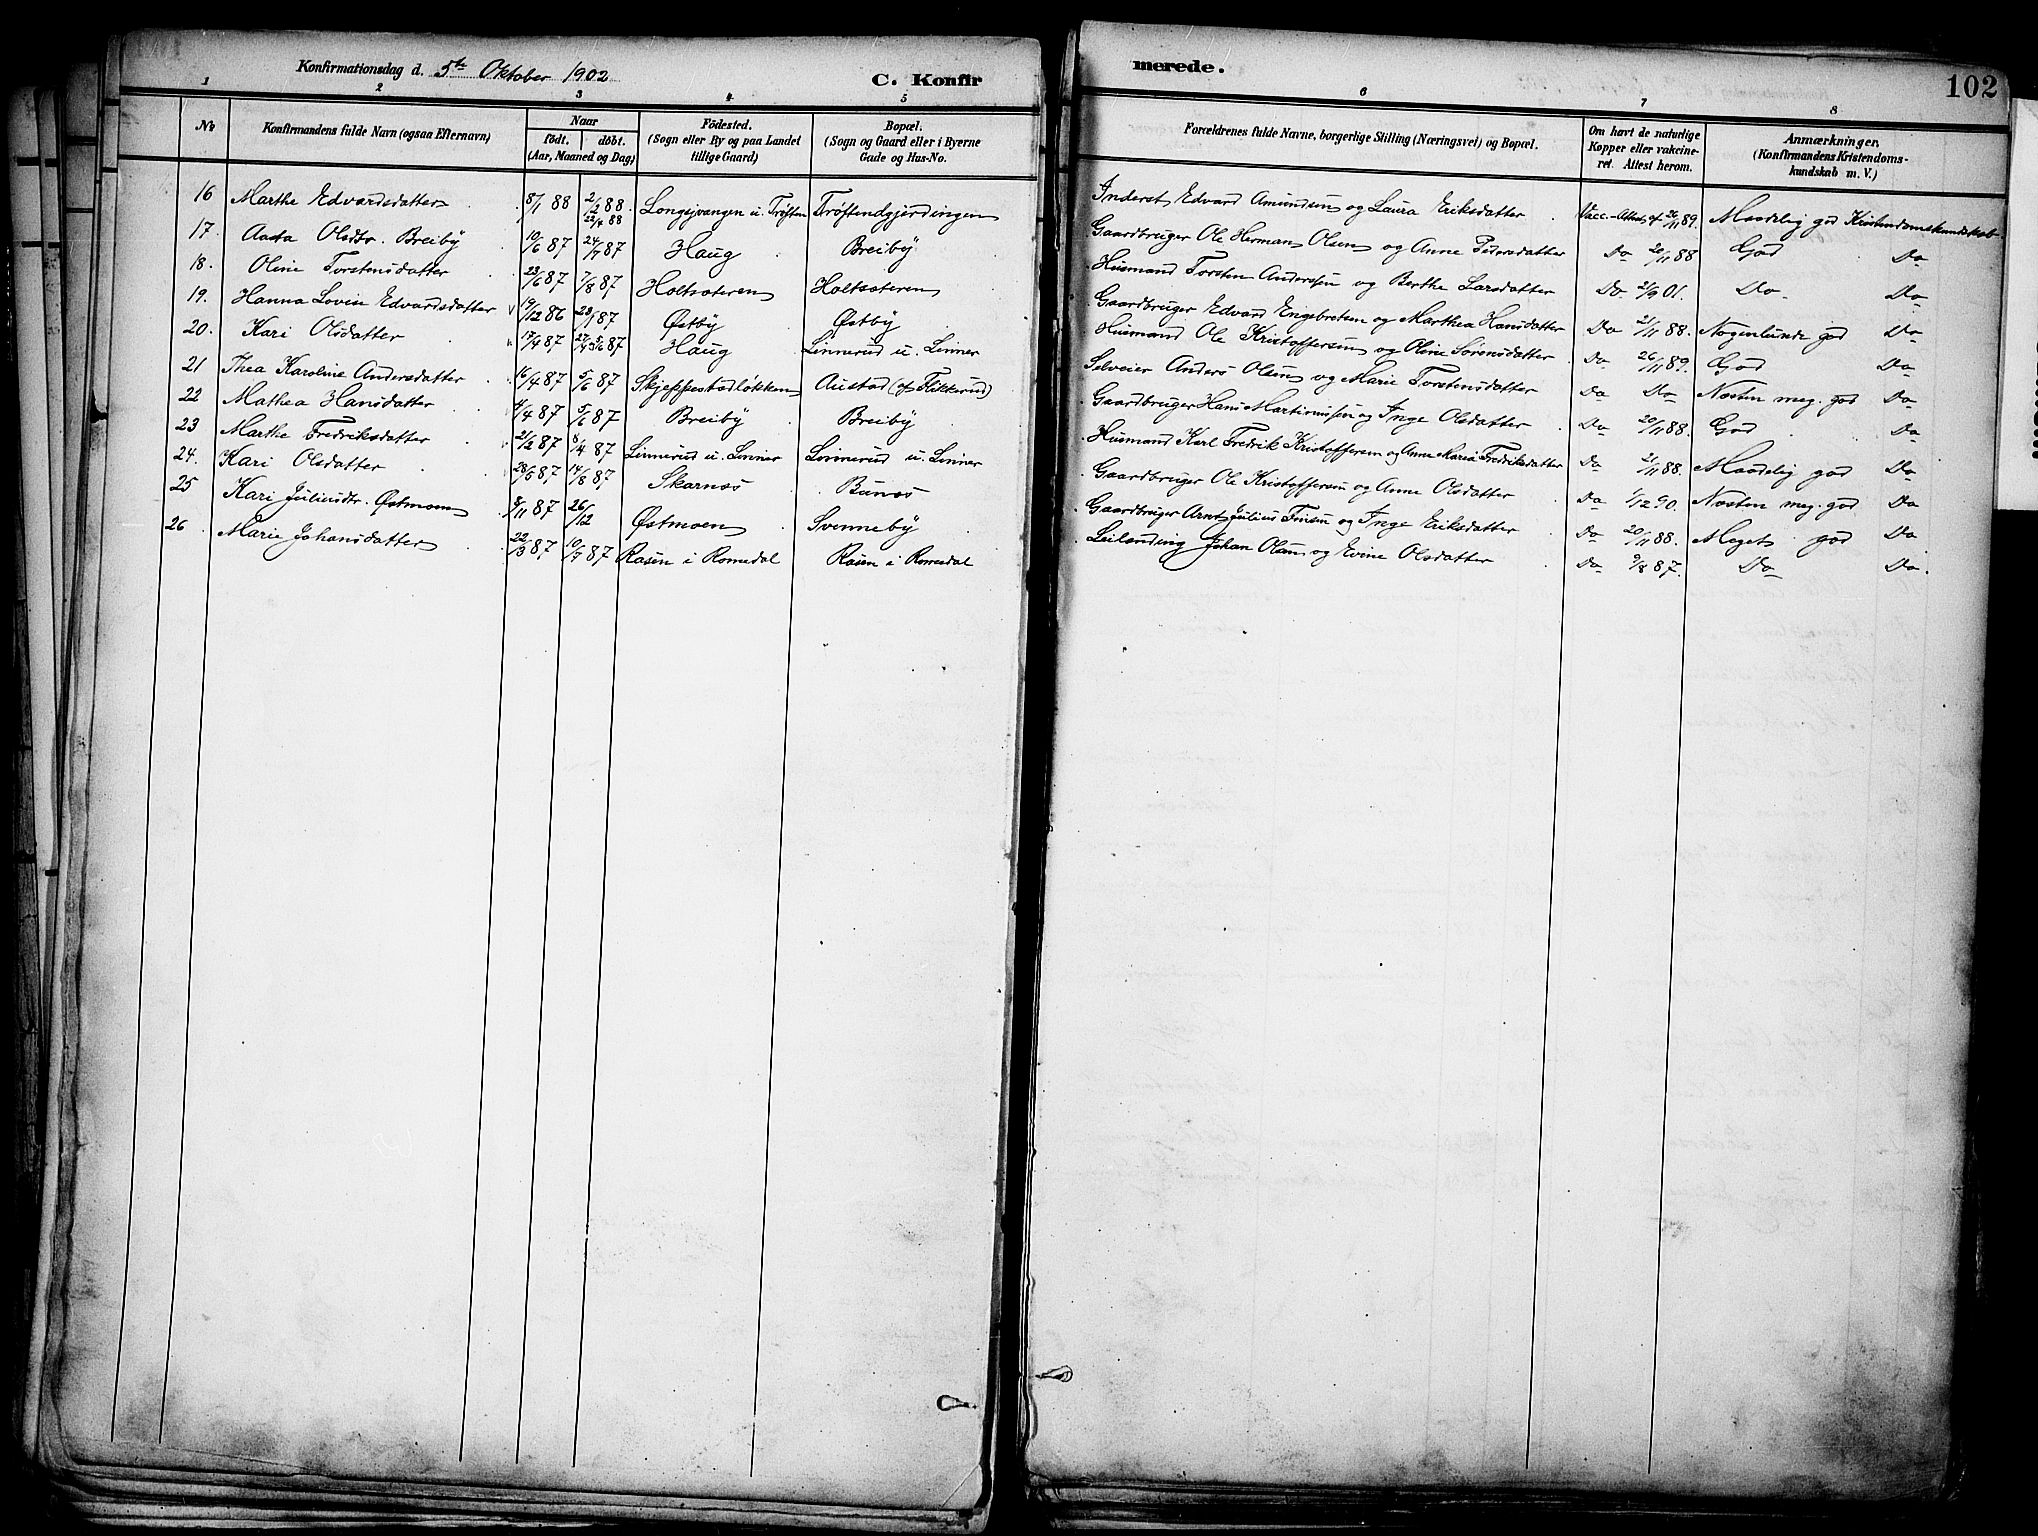 Konfirmationsdag d. 5te Oktober 1902
C. Konfir
merede.
102
1 2 3 4 5 6 7 8
No Konfirmandens fulde Navn (ogsaa Efternavn) Naar født. døbt. (Aar, Maaned og Dag) Fødested. (Sogn eller By og paa Landet tillige Gaard) Bopæl. (Sogn og Gaard eller i Byerne Gade og Hus-No. Forældrenes fulde Navne, borgerlige Stilling (Næringsvei) og Bopæl. Om havt de naturlige Kopper eller vakcineret. Attest herom. Anmærkninger. (Konfirmandens Kristendomskundskab m. V.)
16 Marthe Edvardsdatter 8/1 88 2/2 88 22/4 88 Longejvangen u. Trøften Trøftendgjerdingen Inderst Edvard Amundsen og Laura Eriksdatter Vacc.-Attest af 20/11 89. Maadelig god Kristendomskundskab
17. Aasta Olsdtr. Breiby 10/6 87 24/7 87 Haug Breiby Gaardbruger Ole Herman Olsen og Anne Pedersdatter Do 20/11 88 God Do
18. Oline Torstensdatter 23/6 87 7/8 87 Holtsæteren Holtsæteren Husmand Torsten Andersen og Berthe Larsdatter Do 2/9 01. Do Do
19. Hanna Lovise Edvardsdatter 19/12 86 23/1 87 Østby Østby Gaardbruger Edvard Engebretsen og Marthea Hansdatter Do 21/11 88. Nogenlunde god Do
20. Kari Olsdatter 17/4 87 27/4 5/6 87 Haug Linnerud u. Linner Husmand Ole Kristoffersen og Oline Sørensdatter Do 26/11 89. God Do
21 Thea Karoline Andersdatter 16/4 87 5/6 87 Skjeppestadløkken Austad (af Flikkerud) Selveier Anders Olsen og Marie Torstensdatter Do Do Næsten meg. god Do
22 Mathea Hansdatter 4/4 87 5/6 87 Breiby Breiby Gaardbruger Hans Martinussen og Inge Olsdatter Do 20/11 88. God Do
23 Marthe Fredriksdatter 21/2 87 8/4 87 Linnerud u. Linner Linnerud u. Linner Husmand Karl Fredrik Kristoffersen og Anne Maria Fredriksdatter Do 21/11 88. Maadelig god Do
24. Kari Olsdatter 28/5 87 14/8 87 Skarnæs Bunæs Gaardbruger Ole Kristoffersen og Anne Olsdatter Do 1/12 90. Næsten meg. god Do
25 Kari Juliusdtr. Østmoen 8/11 87 26/12 Østmoen Svenneby Gaardbruger Arnt Julius Finsen og Inge Eriksdatter Do 20/11 88. Meget god Do
26. Marie Johansdatter 22/3 87 10/7 87 Rasen i Romedal Rasen i Romedal Leilænding Johan Olsen og Evine Olsdatter Do 9/8 87. Do Do.